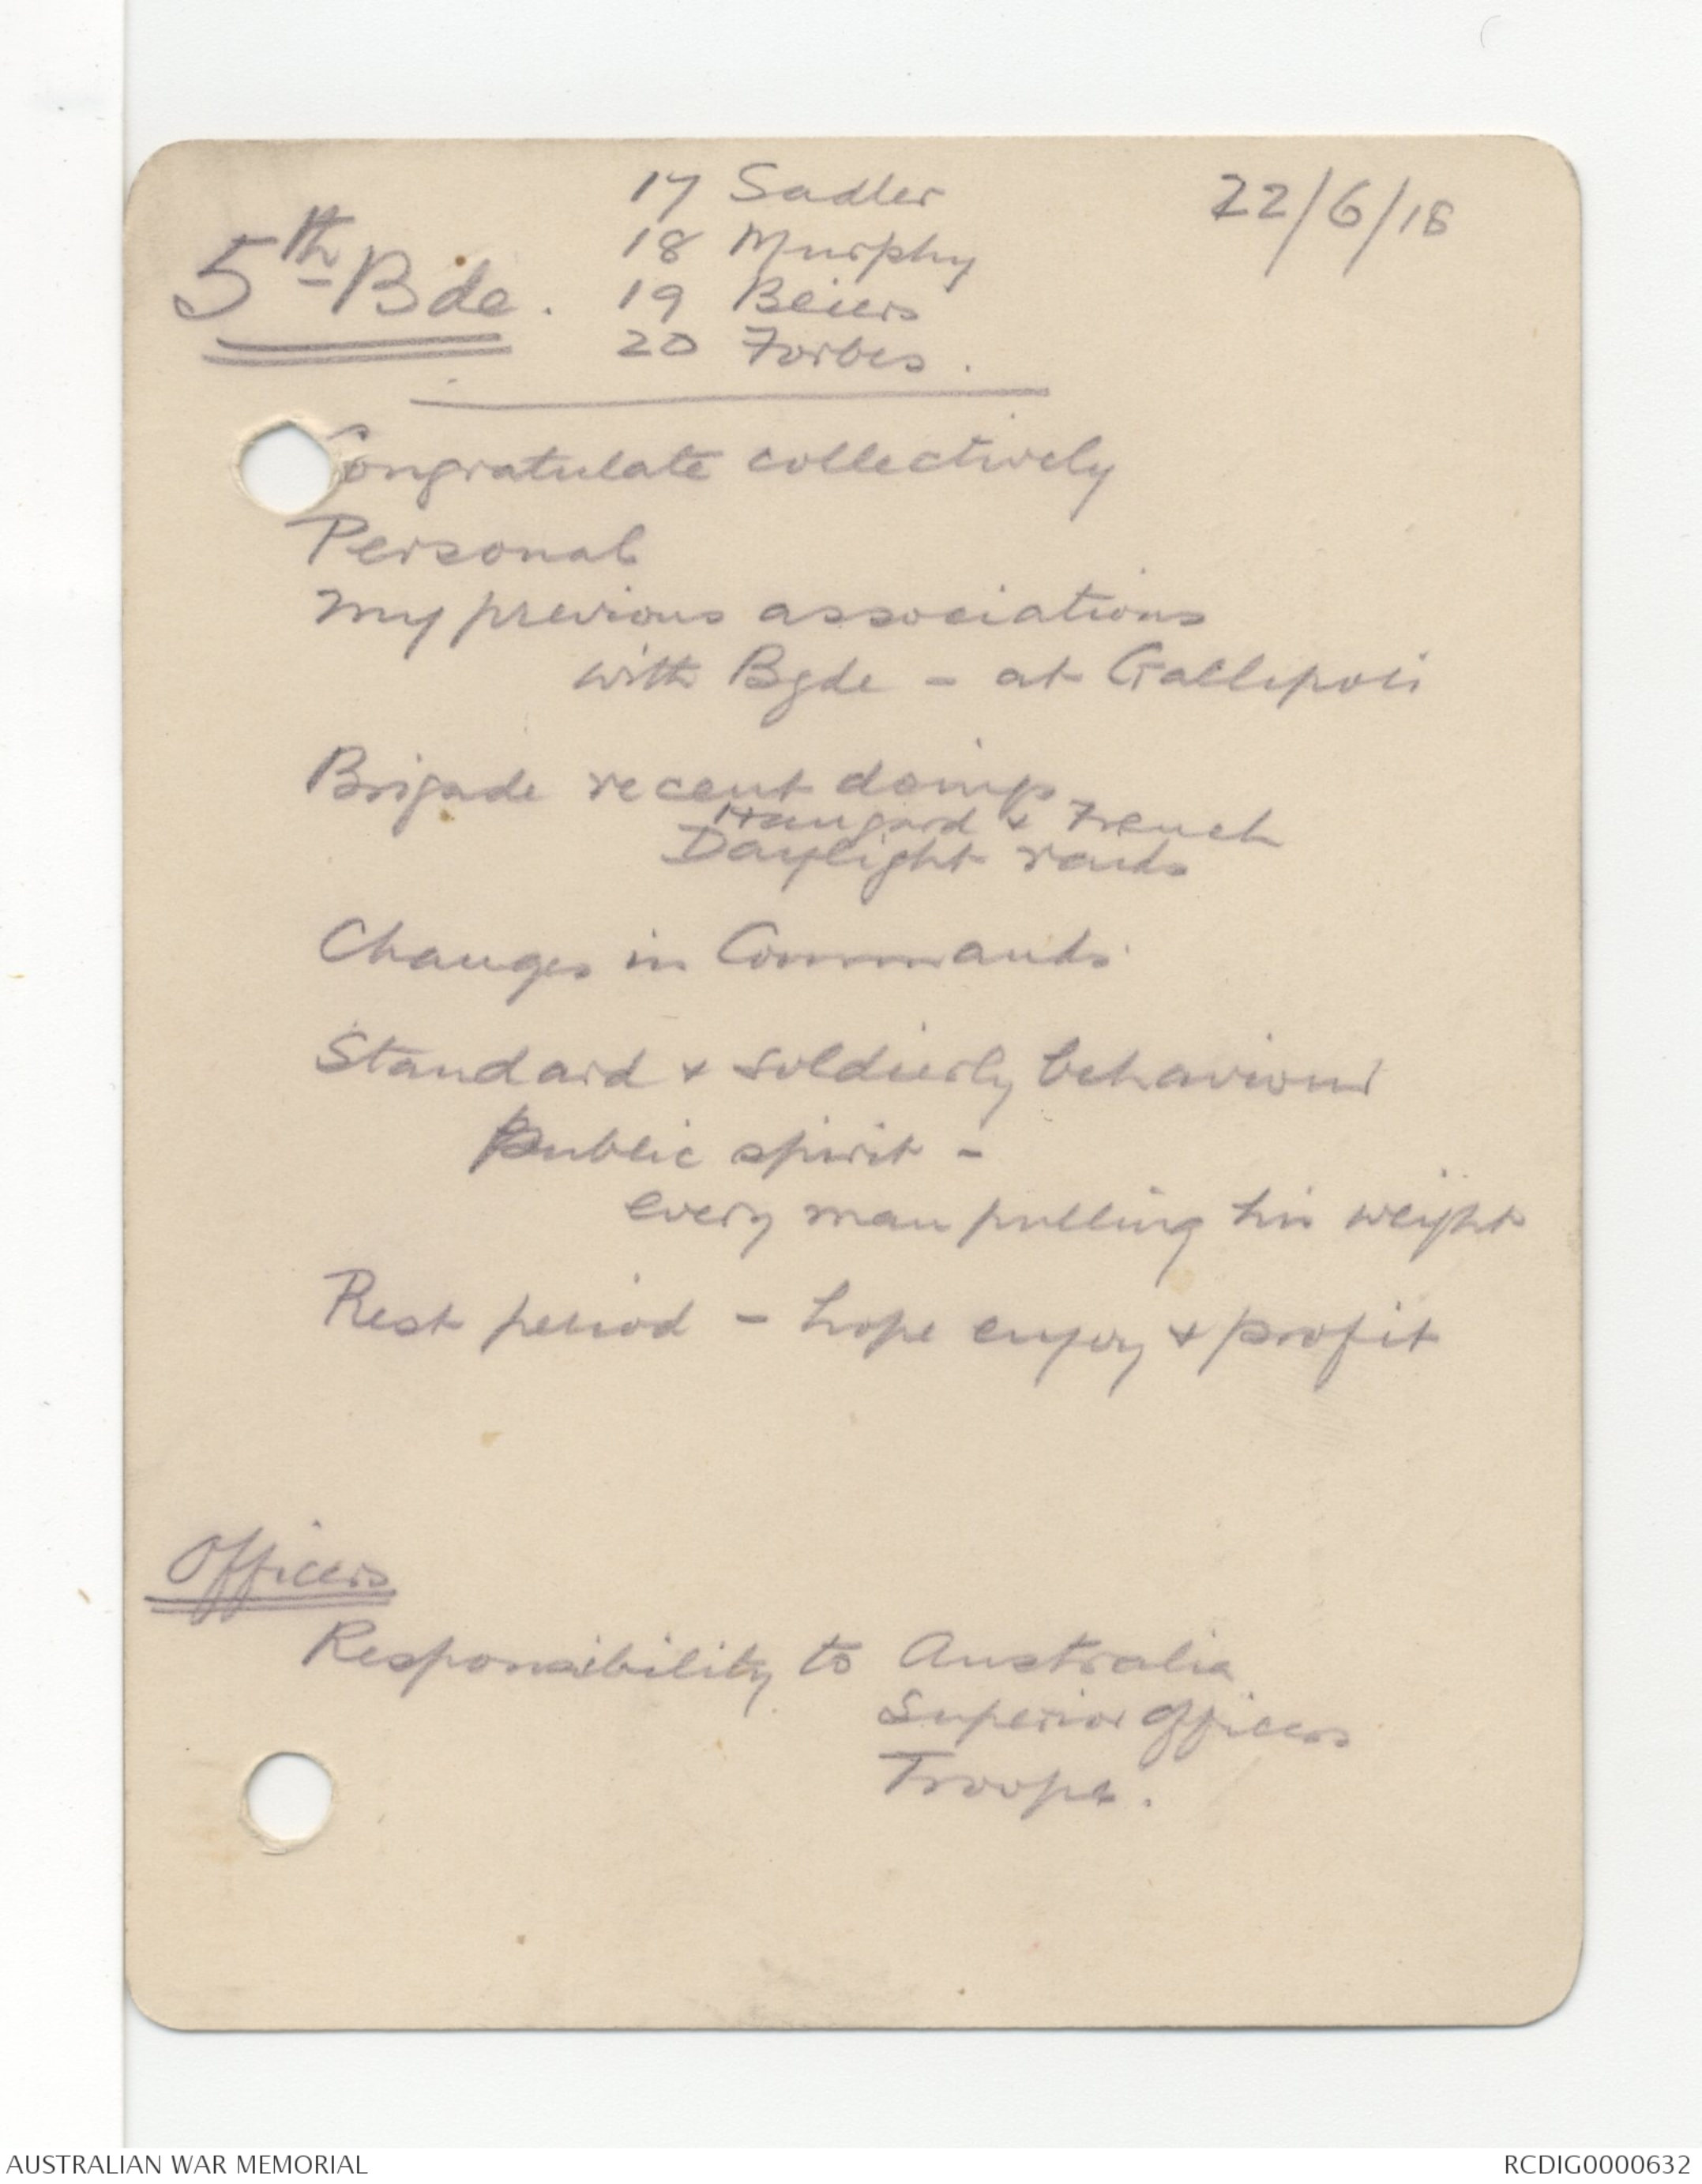 17 Sadler
22/6/18
18 Murphy
5th Bde.
19 Beiers
20 Forbes.
Congratulate collectively
Personal
My previous associations
with Bgde - at Gallipoli
Brigade recent doings
Hangard & French
Daylight raids
Changes in Commands
Standard & soldierly behaviour
Public spirit -
every man pulling his weight
Rest period - hope enjoy & profit
Officers
Responsibility to Australia
Superior Officers
Troops.
AUSTRALIAN WAR MEMORIAL
RCDIG0000632